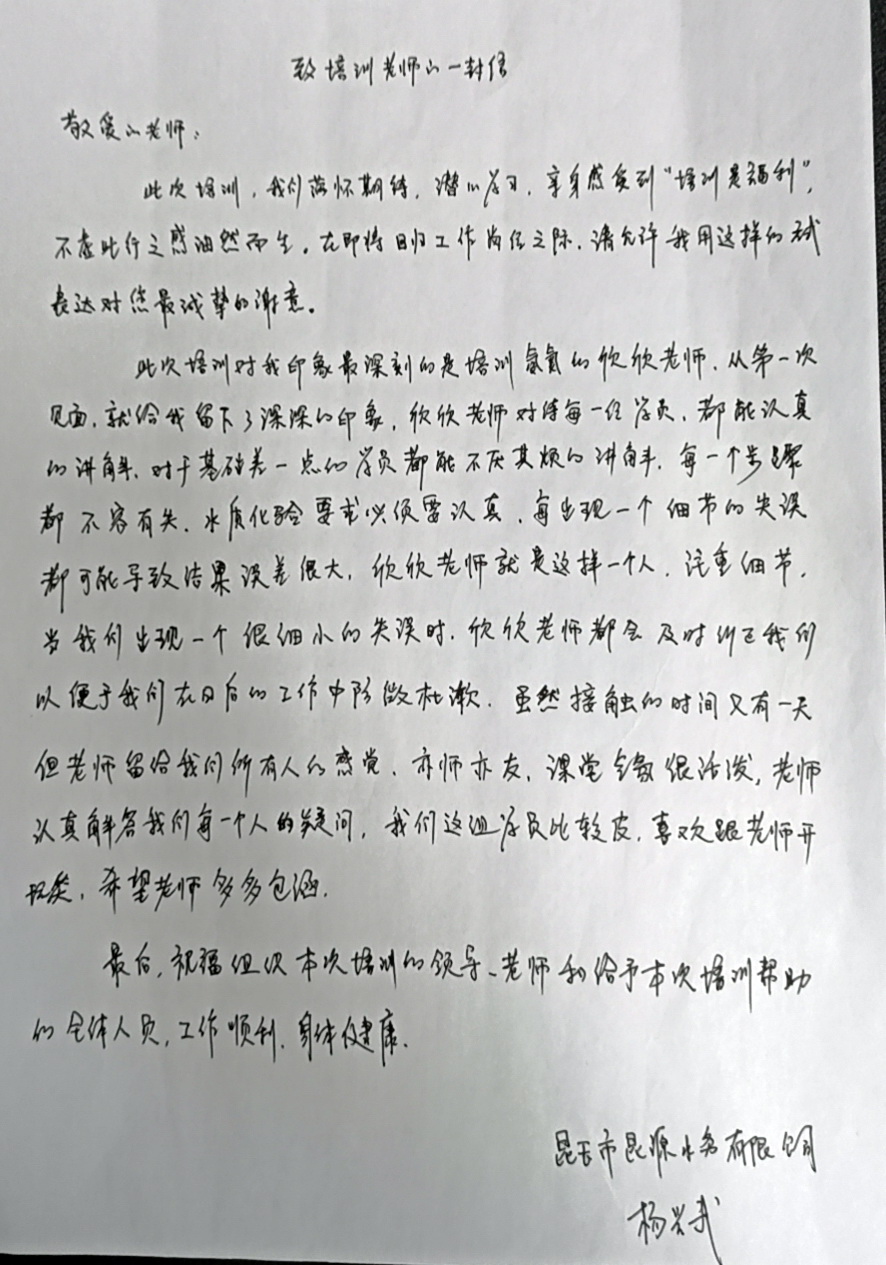 致培训老师的一封信
敬爱的老师：
此次培训，我们满怀期待，潜心学习，亲身感受到“培训是福利”，
不虚此行之感油然而生。在即将回归工作岗位之际，请允许我用这样的方式
表达对您最诚挚的谢意。
此次培训对我印象最深刻的是培训氨氮的欣欣老师，从第一次
见面，就给我留下了深深的印象，欣欣老师对待每一位学员，都能认真
的讲解，对于基础差一点的学员都能不厌其烦的讲解，每一个步骤
都不容有失，水质化验要求必须要认真，每出现一个细节的失误
都可能导致结果误差很大，欣欣老师就是这样一个人，注重细节，
当我们出现一个很细小的失误时，欣欣老师都会及时纠正我们
以便于我们在日后的工作中防微杜渐，虽然接触的时间只有一天
但老师留给我们所有人的感觉，亦师亦友，课堂气氛很活泼，老师
认真解答我们每一个人的疑问，我们这组学员比较皮，喜欢跟老师开
玩笑，希望老师多多包涵。
最后，祝福组织本次培训的领导、老师和给予本次培训帮助
的全体人员，工作顺利，身体健康。
市昆源水务有限公司
杨兴武